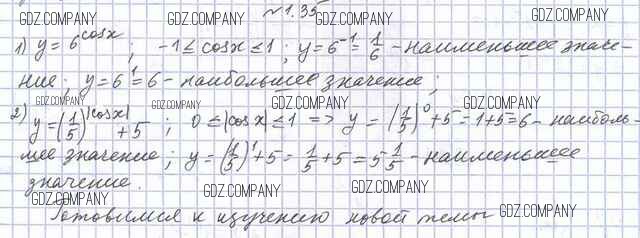 GDZ.COMPANY №1.35 GDZ.COMPANY
GDZ.COMPANY GDZ.COMPANY
1) y = 6^cosx ; -1 ≤ cosx ≤ 1 ; y = 6^-1 = 1/6 - наименьшее значе-
GDZ.COMPANY
ние ; y = 6^1 = 6 - наибольшее значение ;
GDZ.COMPANY GDZ.COMPANY GDZ.COMPANY GDZ.COMPANY
2) y = (1/5)^|cosx| + 5 ; 0 ≤ |cosx| ≤ 1 => y = (1/5)^0 + 5 = 1 + 5 = 6 - наиболь-
GDZ.COMPANY
шее значение ; y = (1/5)^1 + 5 = 1/5 + 5 = 5 1/5 - наименьшее
GDZ.COMPANY GDZ.COMPANY
значение.
GDZ.COMPANY GDZ.COMPANY
Готовимся к изучению новой темы GDZ.COMPANY